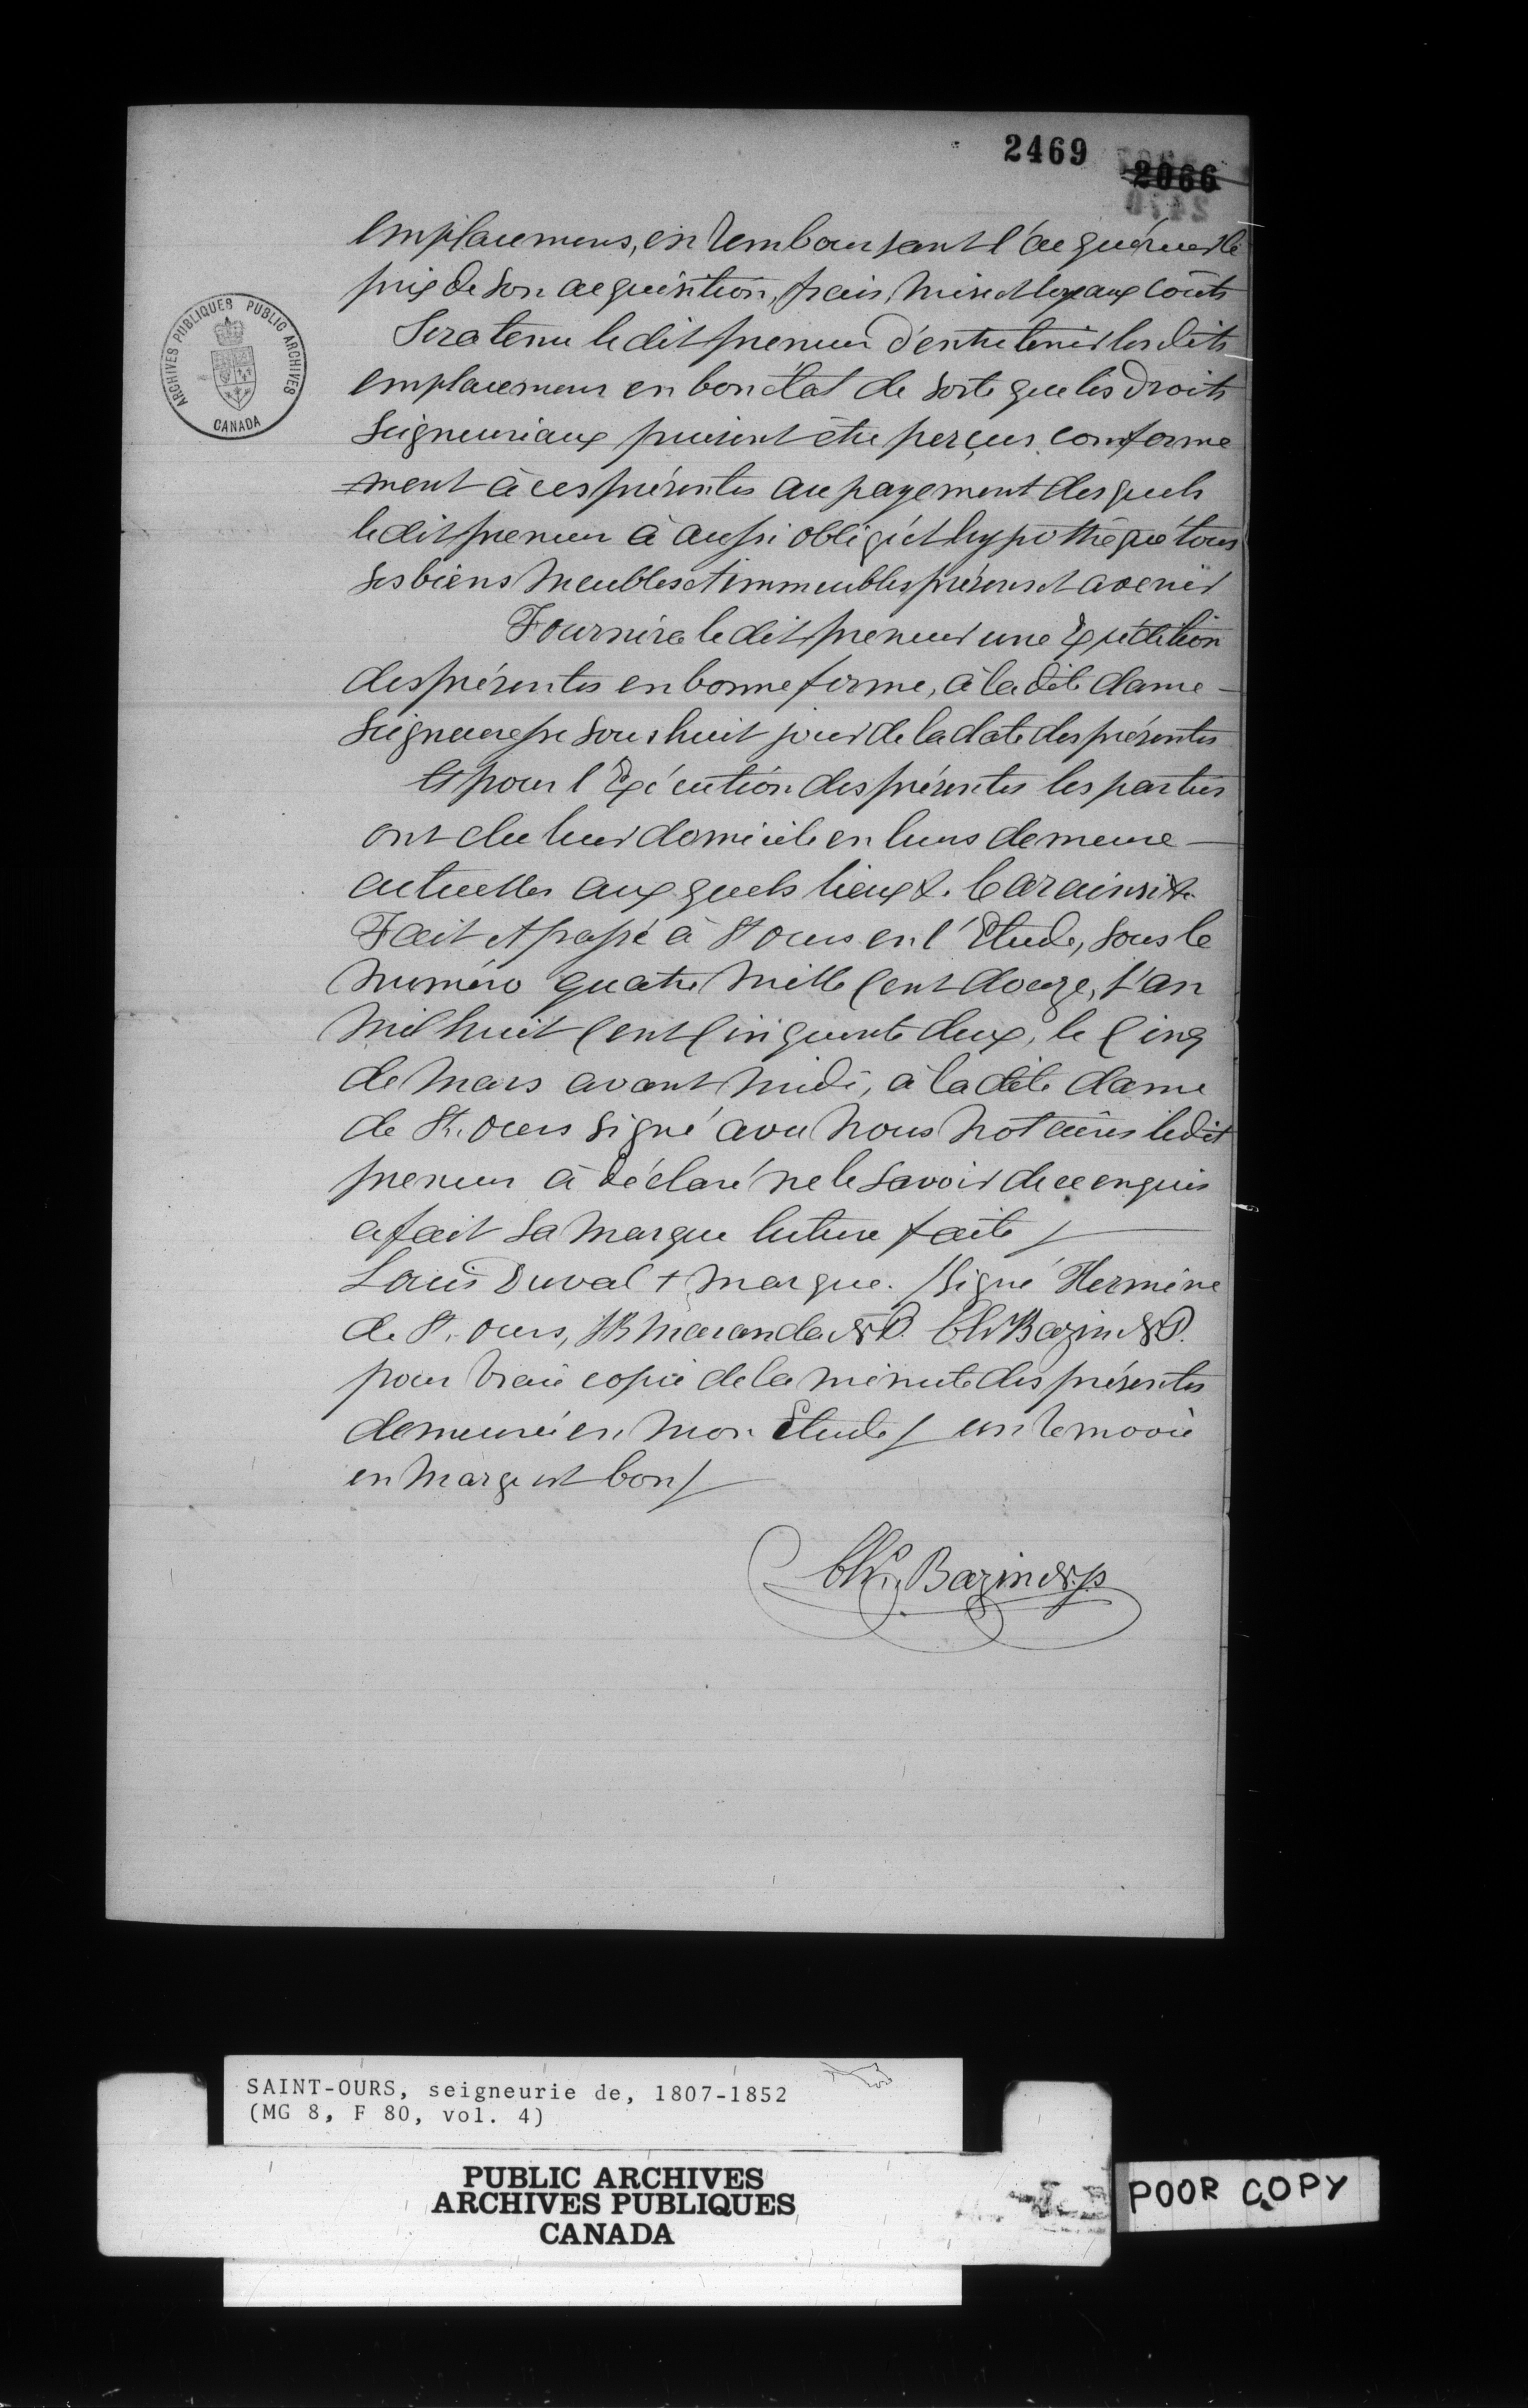 2469
2066
emplacemens, en remboursant l'acquéreur le
prix de son acquisition, frais, mise et loyaux coûts
Sera tenu le dit preneur d'entretenir les dits
emplacemens en bon état de sorte que les droits
Seigneuriaux puisent être perçus conforme
=ment à ces présentes au payement desquels
le dit preneur à aussi obligé et hypothéqué tous
ses biens meubles et immeubles présens et avenir
Fournira le dit preneur une Expédition
des présentes en bonne forme, à la dite dame
Seigneuresse sous huit jour de la date des présentes
Et pour l'Exécution des présentes les parties
ont élu leur domicile en leurs demeure
actuelles aux quels lieux &. Car ainsi &.
Fait et passé à St Ours en l'Etude, sous le
numéro quatre mille cent douze, l'an
mil huit cent cinquante deux, le cinq
de mars avant midi, à la dite dame
de St. Ours signé avec nous notaires le dit
preneur à déclaré ne le savoir de ce enquis
a fait sa marque lecture faite /
Louis Duval + marque. / Signé Hermine
de St. Ours, JB Maranda N.P. Chs Bazin N.P.
pour vraie copie de la minute des présentes
demeurée en mon Etude / un renvoie
en marge est bon /
Chs. Bazin N.P.
ARCHIVES PUBLIQUES PUBLIC ARCHIVES
CANADA
SAINT-OURS, seigneurie de, 1807-1852
(MG 8, F 80, vol. 4)
PUBLIC ARCHIVES
ARCHIVES PUBLIQUES
CANADA
POOR COPY